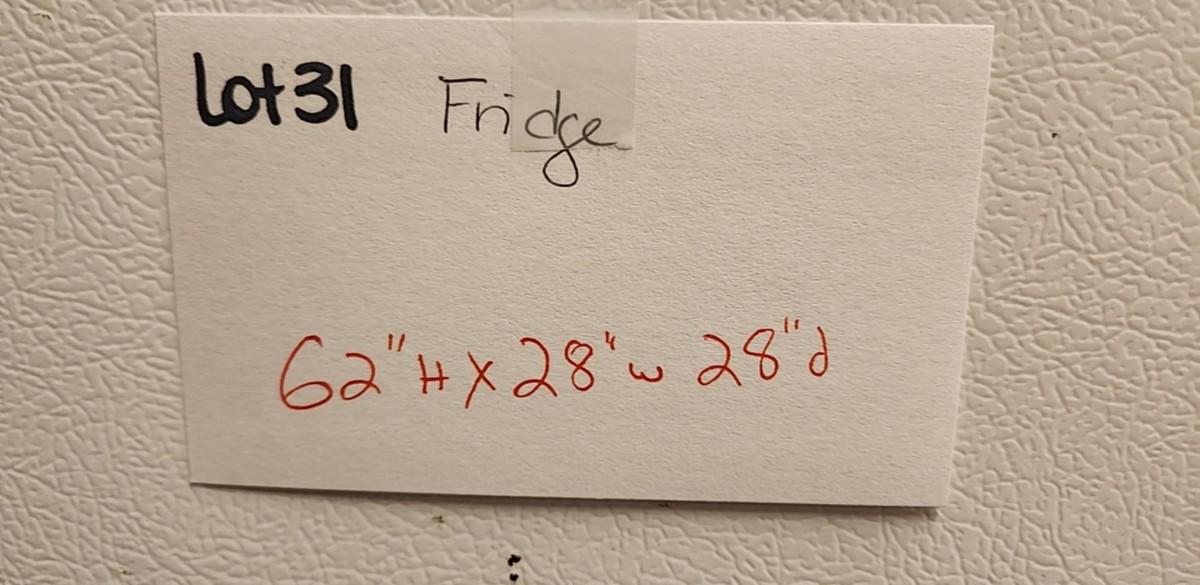 Lot 31 Fridge
62" H X 28" w 28" d